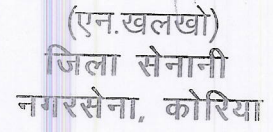 (एन.खलखो)
जिला सेनानी
नगरसेना, कोरिया